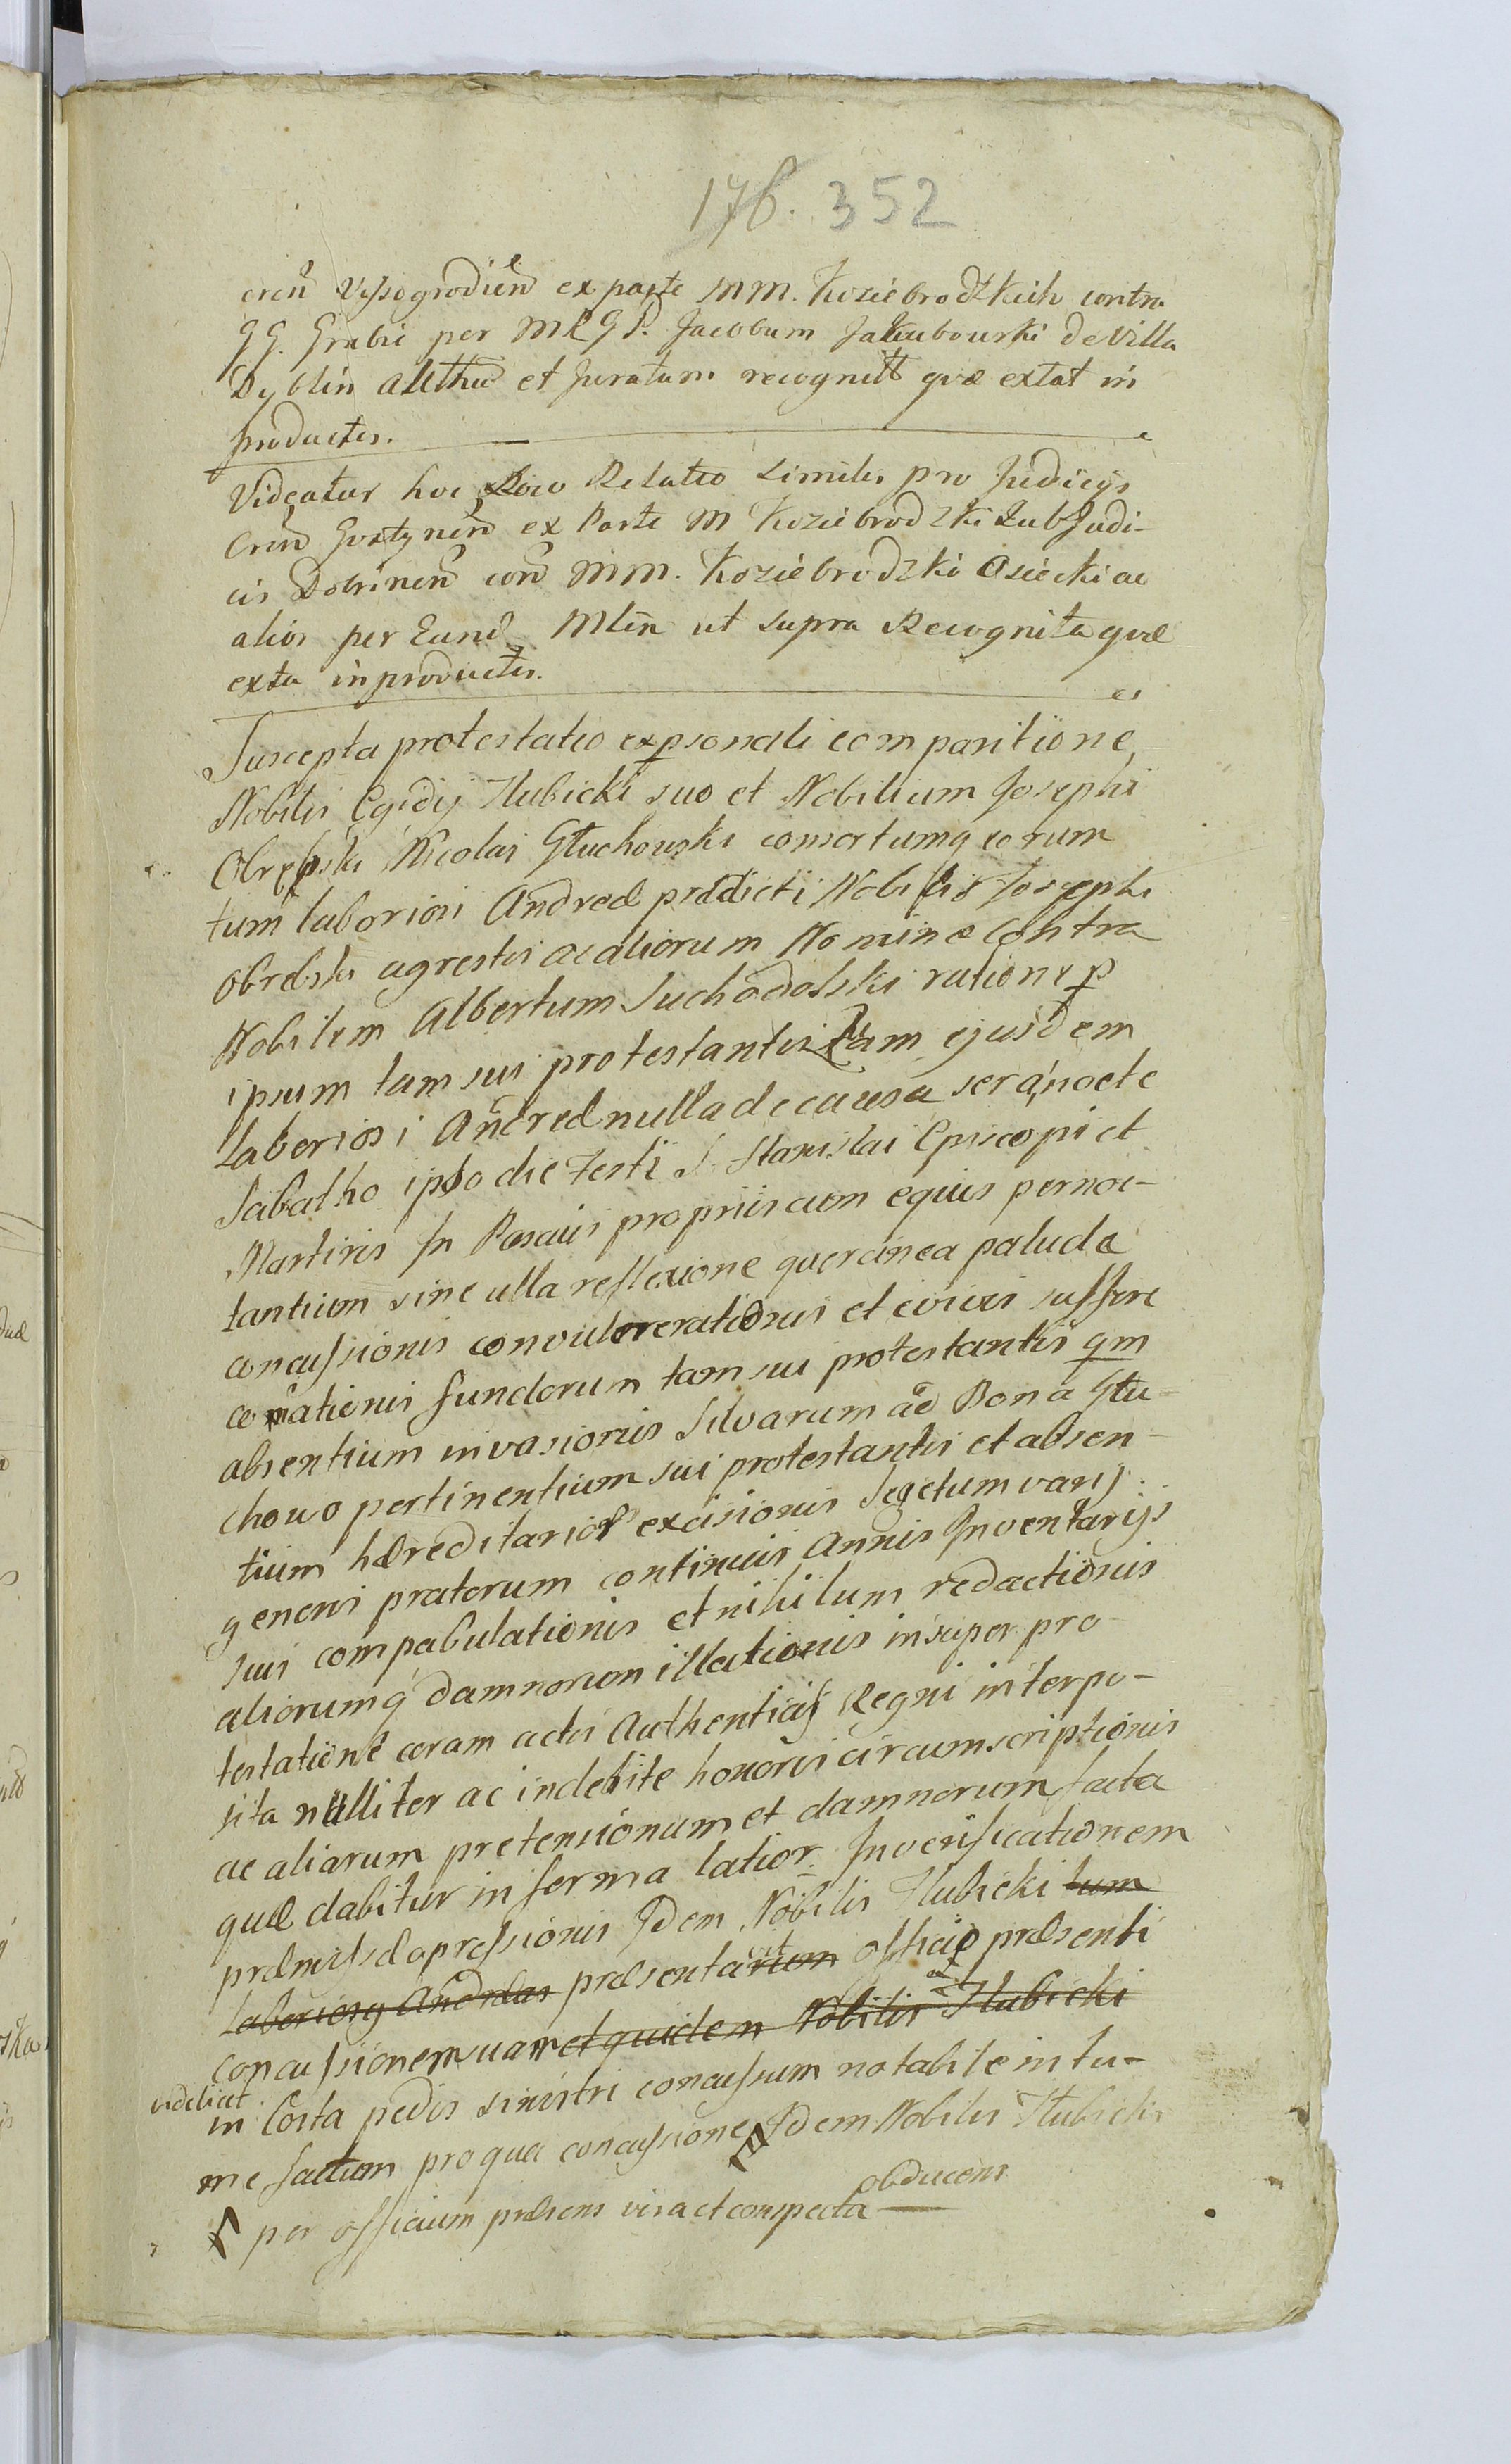 176. 352
cren Vyssogrodien ex parte MM. Koziebrodzkich contra
GG. Grabie per MRGP. Jacobum Jakubowski de Villa
Dyblin Autthen et Juratum recognitt quæ extat in
productis.
Videatur hoc Loco Relatio Similis pro Judicijs
Cren Gostynen ex Parte M Koziebrodzki SubJudi-
cis Dobrinen con MM. Koziebrodzki Osiecki ac
alios per Eund Mlen ut supra Recognita quæ
exta in productis.
Suscepta protestatio ex psonali comparitione
Nobilis Egidij Hubicki suo et Nobilium Josephi
Obrębski Nicolai Głuchowski consortumq eorum
tum laboriosi Andreæ prædicti Nobilis Josephi
Obrębski agrestis ac aliorum Nomine Contra
Nobilem Albertum Suchodolski ratione p
ipsum tam sui protestantis tam ejusdem
Laboriosi Andreæ nulla de causa sera nocte
Sabatho ipso die Festi S. Stanislai Episcopi et
Martiris In Pascuis proprijs cum equis pernoc-
tantium sine ulla reflexione quercinea palude
concussionis convulnerationis et eviris suffire
cominationis fundorum tam sui protestantis qm
absentium invasionis Silvarum ad Bona Głu-
chowo pertinentium sui protestantis et absen-
tium hæreditarior excisionis Segetum varij
generis pratorum continuis Annis Inventarijs
suis compabulationis et nihilum redactionis
aliorumq damnorum illationis insuper pro-
testatione coram actis Authenticis Regni interpo-
sita nulliter ac indebite honoris circumscriptionis
ac aliarum pretensionum et damnorum facta
quæ dabitur in forma latior. In verificationem
præmissæ opressionis Idem Nobilis Hubicki tum
Laboriosq Andreas præsentavit officio præsenti
concussionem suam et quidem Nobilis Hubicki
videlicet
in Costa pedis sinistri concussum notabile in tu-
me factum pro qua concussione Idem Nobilis Hubicki
obducens
per officium præsens visa et conspecta